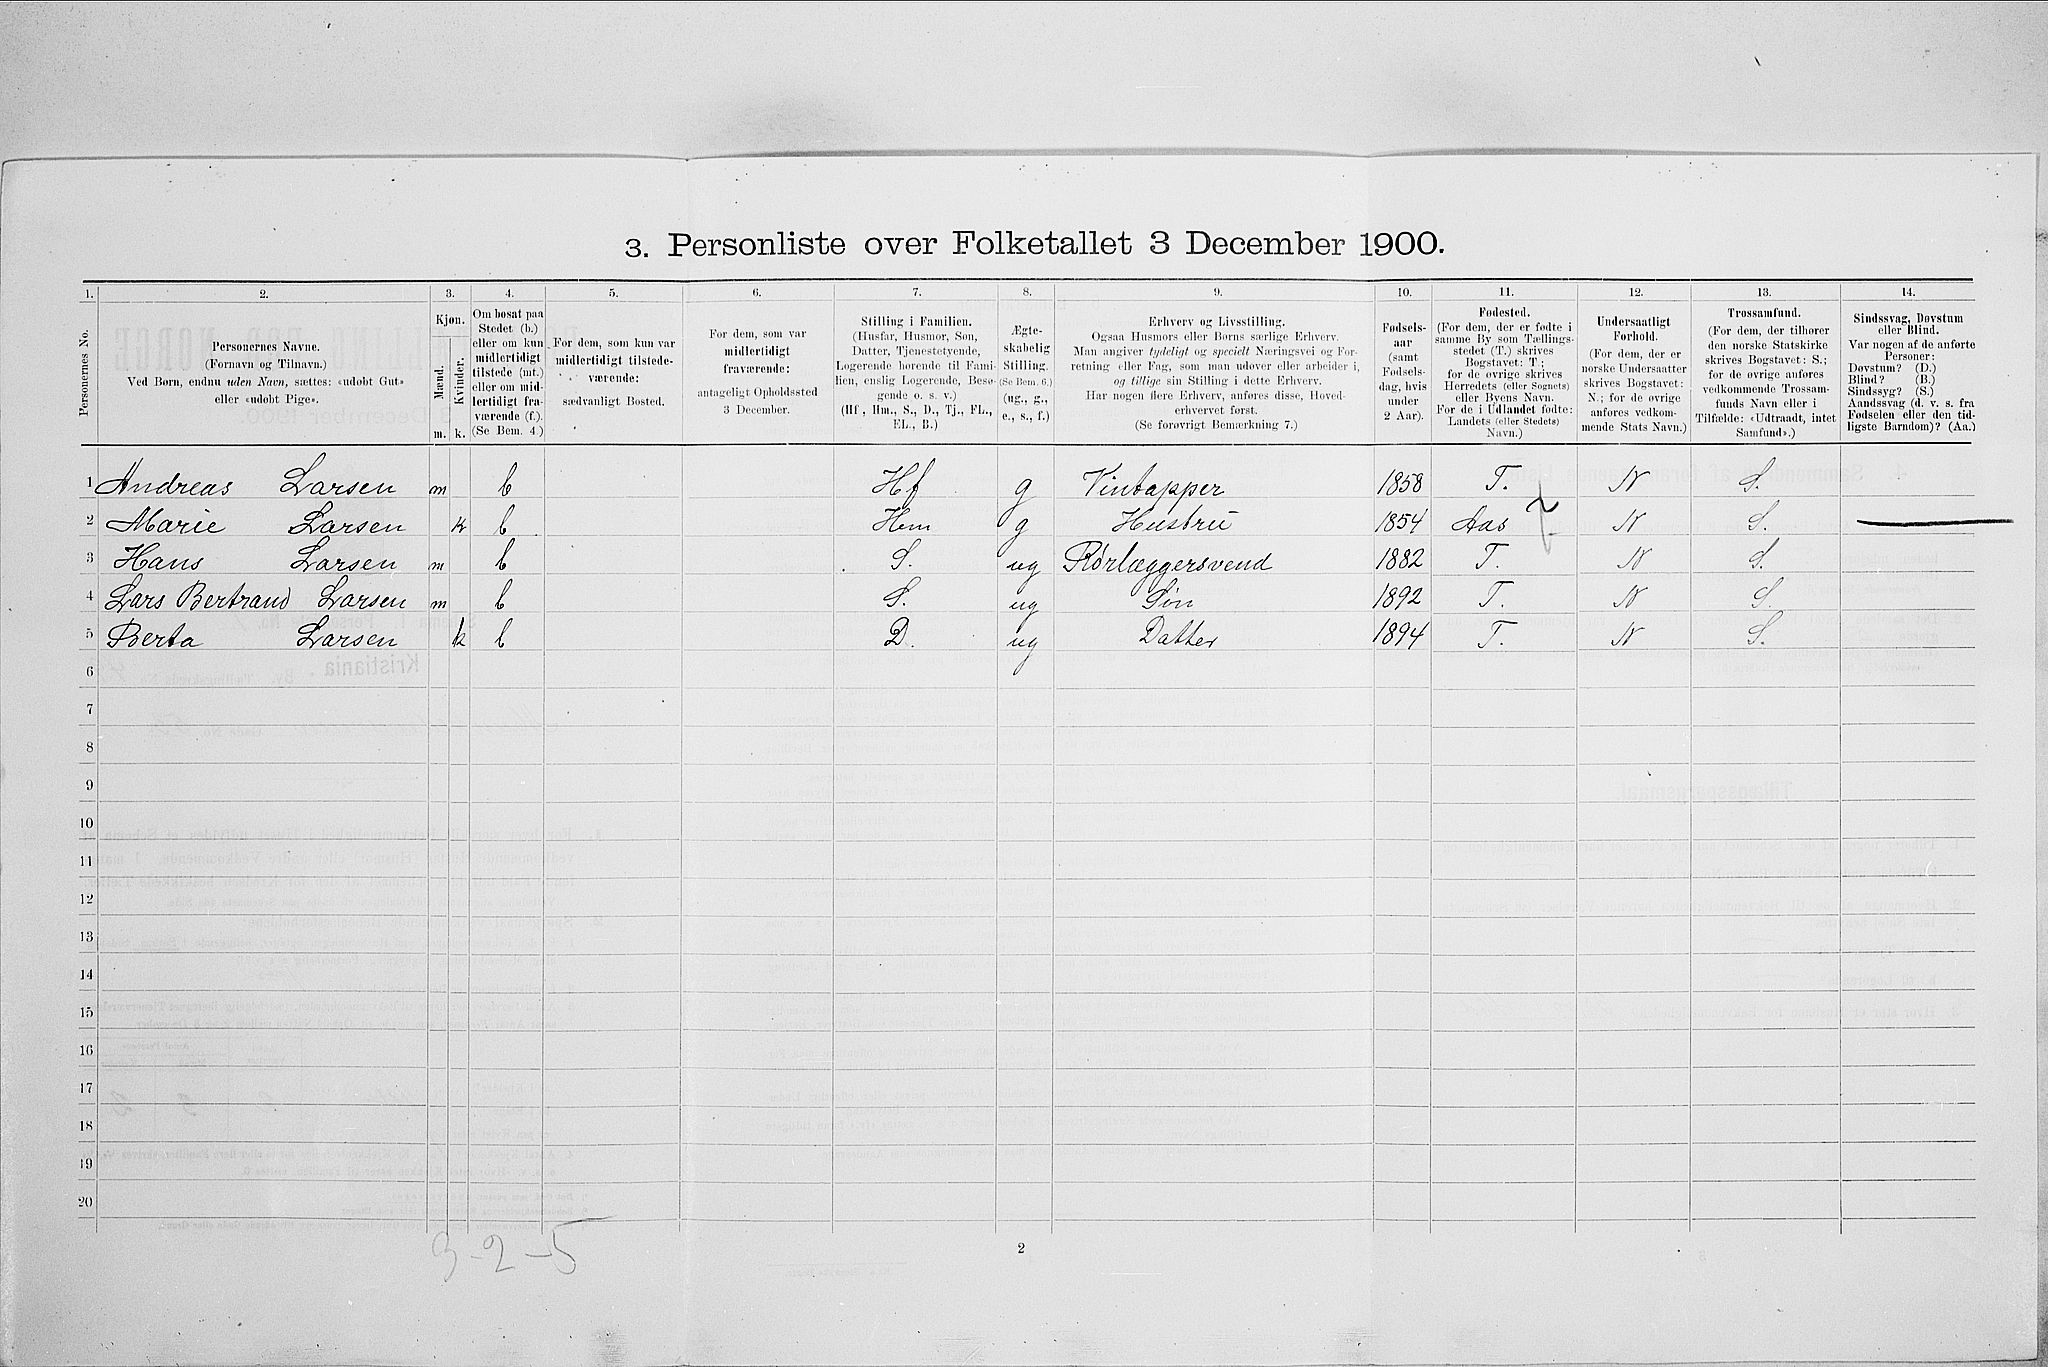 3. Personliste over Folketallet 3 December 1900.
1. 2. 3. 4. 5. 6. 7. 8. 9. 10. 11. 12. 13. 14.
Personernes No.
Personernes Navne.
(Fornavn og Tilnavn.)
Ved Børn, endnu uden Navn, sættes: «udøbt Gut»
eller «udøbt Pige».
Kjøn.
Mænd.
Kvinder.
m. k.
Om bosat paa
Stedet (b.)
eller om kun
midlertidigt
tilstede (mt.)
eller om mid-
lertidigt fra-
værende (f.).
(Se Bem. 4.)
For dem, som kun var
midlertidigt tilstede-
værende:
sædvanligt Bosted.
For dem, som var
midlertidigt
fraværende:
antageligt Opholdssted
3 December.
Stilling i Familien.
(Husfar, Husmor, Søn,
Datter, Tjenestetyende,
Logerende hørende til Fami-
lien, enslig Logerende, Besø-
gende o. s. v.)
(Hf., Hm., S., D., Tj., FL.,
EL., B.)
Ægte-
skabelig
Stilling.
(Se Bem. 6.)
(ug., g.,
e., s., f.)
Erhverv og Livsstilling.
Ogsaa Husmors eller Børns særlige Erhverv.
Man angiver tydeligt og specielt Næringsvei og For-
retning eller Fag, som man udøver eller arbeider i,
og tillige sin Stilling i dette Erhverv.
Har nogen flere Erhverv, anføres disse, Hoved-
erhvervet først.
(Se forøvrigt Bemærkning 7.)
Fødsels-
aar
(samt
Fødsels-
dag, hvis
under
2 Aar).
Fødested.
(For dem, der er fødte i
samme By som Tællings-
stedet (T.) skrives
Bogstavet: T.;
for de øvrige skrives
Herredets (eller Sognets)
eller Byens Navn.
For de i Udlandet fødte:
Landets (eller Stedets)
Navn.)
Undersaatligt
Forhold.
(For dem, der er
norske Undersaatter
skrives Bogstavet:
N.; for de øvrige
anføres vedkom-
mende Stats Navn.)
Trossamfund.
(For dem, der tilhører
den norske Statskirke
skrives Bogstavet: S.;
for de øvrige anføres
vedkommende Trossam-
funds Navn eller i
Tilfælde: «Udtraadt, intet
Samfund».)
Sindssvag, Døvstum
eller Blind.
Var nogen af de anførte
Personer:
Døvstum? (D.)
Blind? (B.)
Sindssyg? (S.)
Aandssvag (d. v. s. fra
Fødselen eller den tid-
ligste Barndom)? (Aa.)
1 Andreas Larsen m b Hf g Vintapper 1858 T. N S.
2 Marie Larsen k b Hm g Hustru 1854 Aas N S.
3 Hans Larsen m b S. ug Rørlæggersvend 1882 T. N S.
4 Lars Bertrand Larsen m b S. ug Søn 1892 T. N S.
5 Berta Larsen k b D. ug Datter 1894 T. N S.
6
7
8
9
10
11
12
13
14
15
16
17
18
19
20
3-2-5
2